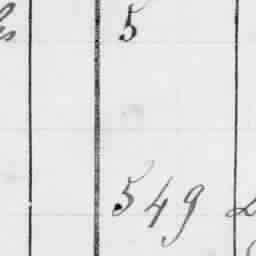 5
549